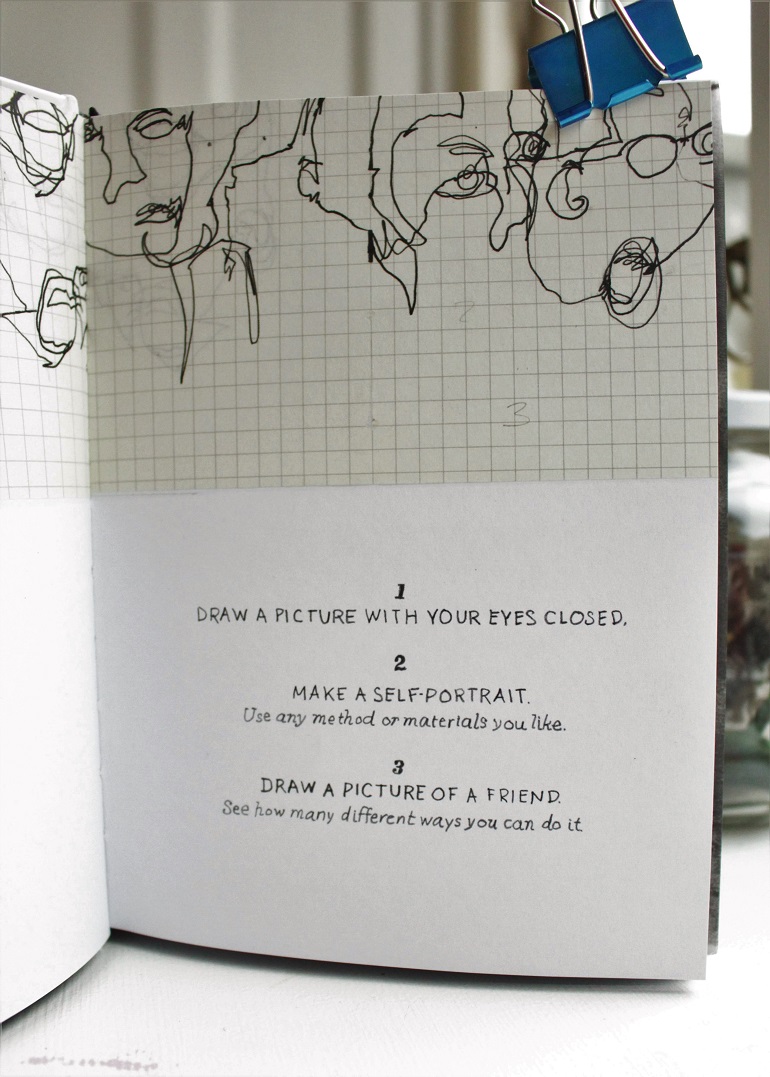 2
3
1
DRAW A PICTURE WITH YOUR EYES CLOSED.
2
MAKE A SELF-PORTRAIT.
Use any method or materials you like.
3
DRAW A PICTURE OF A FRIEND.
See how many different ways you can do it